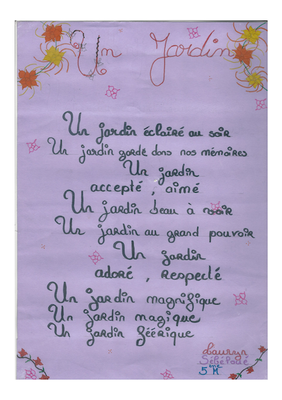 Un Jardin
Un jardin éclairé au soir
Un jardin gardé dans nos mémoires
Un jardin
accepté, aimé
Un jardin beau à voir
Un jardin au grand pouvoir
Un jardin
adoré, respecté
Un jardin magnifique
Un jardin magique
Un jardin féérique
5